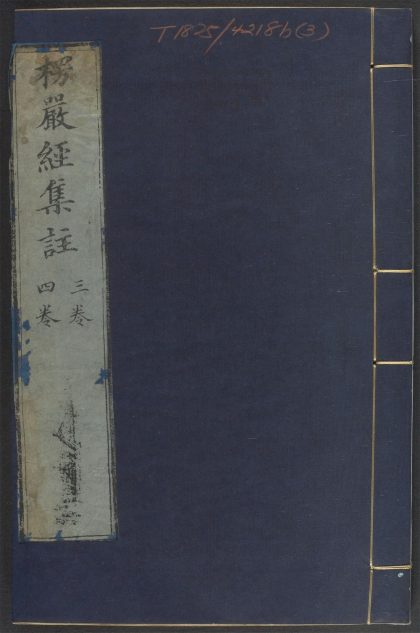 T 1825/4218b(3)
楞嚴經集註
三卷
四卷